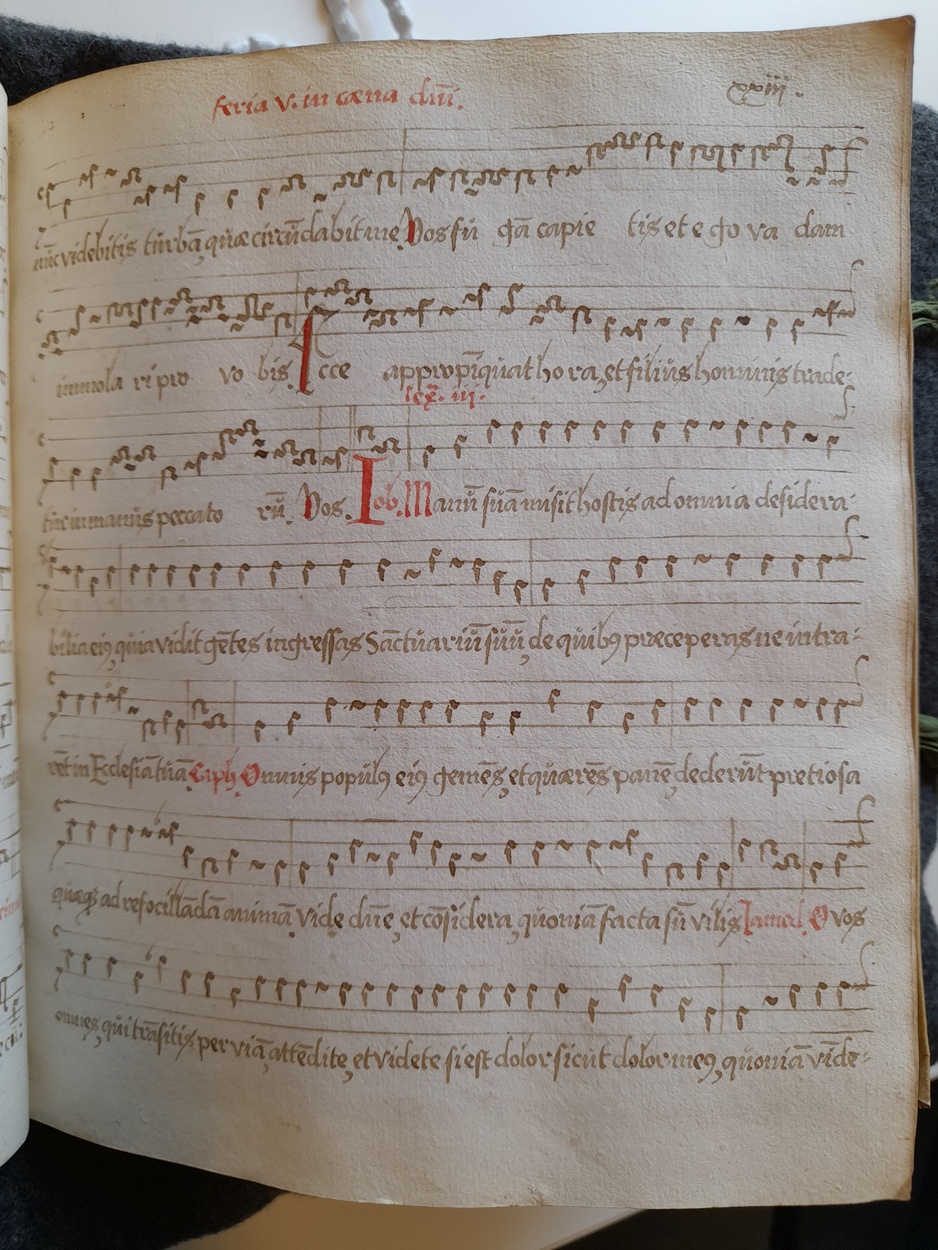 feria v. in cœna dm̄i. xxiii.
nūc videbitis tūrbā, quæ circūdabit me. Vos fu gā capie tis et ego va dam
immola ri pro vo bis. Ecce appropīquat ho ra, et filius hominis trade-
lex. iii.
tur in manus peccato rū. Vos. Iob. Manū suā misit hostis ad omnia desidera-
bilia eiꝰ, quia vidit gētes ingressas Sāctuariū suū, de quibꝰ præceperas ne intra-
rēt in Ecclesiā tuā. Caph. Omnis populꝰ eiꝰ gemēs, et quærēs panē, dederūt pretiosa
quæqꝫ ad refocillādā animā. Vide dn̄e, et cōsidera, quoniā facta sū vilis. Lamed. O vos
omnes, qui trāsitis per viā, attēdite, et videte si est dolor sicut dolor meꝰ, quoniā vīde-